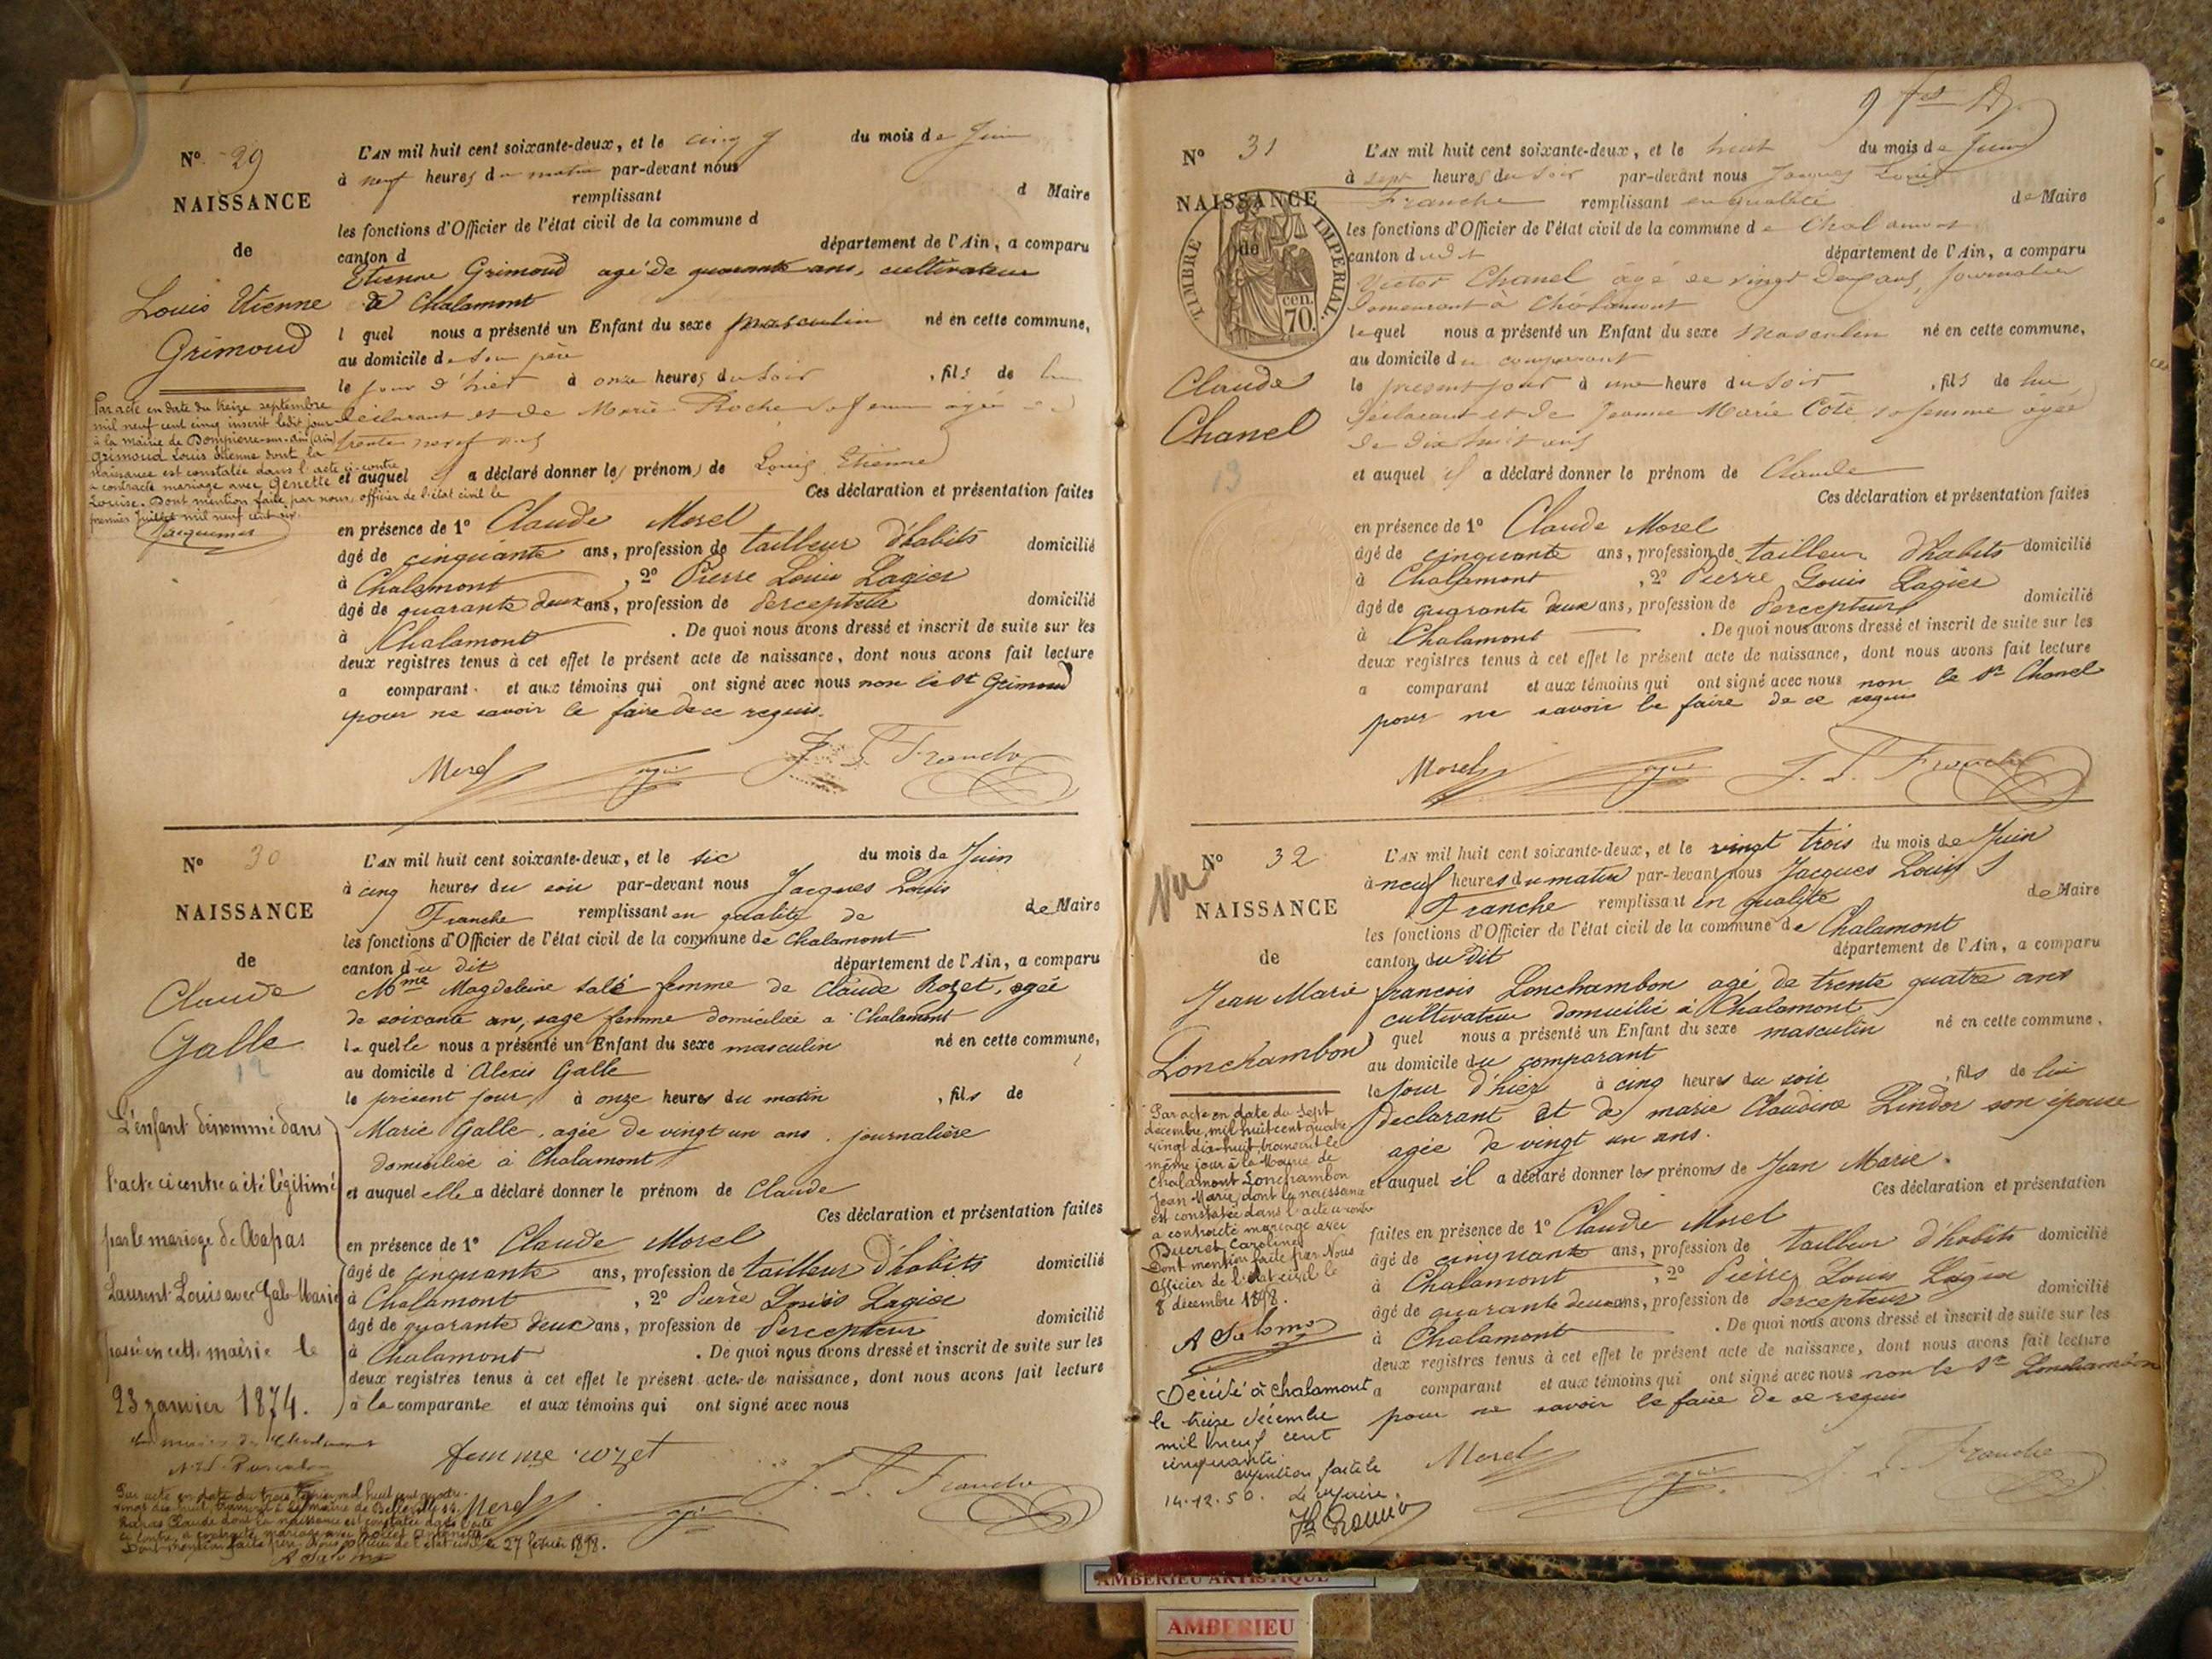 N° 29
NAISSANCE
de
Louis Etienne
Grimoud
Par acte en date du treize septembre
mil neuf cent cinq inscrit ledit jour
à la mairie de Dompierre-sur-Ain (Ain)
Grimoud Louis Etienne dont la
naissance est constatée dans l'acte ci-contre
a contracté mariage avec Genette
Louise. Dont mention faite par nous, officier de l'état civil le
premier Juillet mil neuf cent six.
Jacquemet
L'AN mil huit cent soixante-deux, et le cinq du mois de Juin
à neuf heures du matin par-devant nous
remplissant d Maire
les fonctions d'Officier de l'état civil de la commune d
canton d département de l'Ain, a comparu
Etienne Grimoud agé de quarante ans, cultivateur
à Chalamont
l quel nous a présenté un Enfant du sexe masculin né en cette commune,
au domicile de son père
le jour d'hier à onze heures du soir , fils de lui
déclarant et de Marie Roche sa femme agée de
trente neuf ans
et auquel il a déclaré donner les prénoms de Louis Etienne
Ces déclaration et présentation faites
en présence de 1° Claude Morel
âgé de cinquante ans, profession de tailleur d'habits domicilié
à Chalamont , 2° Pierre Louis Lagier
âgé de quarante deux ans, profession de Percepteur domicilié
à Chalamont . De quoi nous avons dressé et inscrit de suite sur les
deux registres tenus à cet effet le présent acte de naissance, dont nous avons fait lecture
a comparant et aux témoins qui ont signé avec nous non le Sr Grimoud
pour ne savoir le faire de ce requis.
Morel Lagier J. L. Franche
N° 30
NAISSANCE
de
Claude
Galle
12
L'enfant dénommé dans
l'acte ci contre a été légitimé
par le mariage de Rapas
Laurent Louis avec Gale Marie
passé en cette mairie le
23 janvier 1874.
Par acte en date du trois février mil huit cent quatre-
vingt dix-huit transcrit à la mairie de Belleville s/s
Rapas Claude dont la naissance est constatée dans l'acte
ci contre, a contracté mariage avec
Dont mention faite par Nous Officier de l'état civil le 27 février 1898.
A Salomo
L'AN mil huit cent soixante-deux, et le six du mois de Juin
à cinq heures du soir par-devant nous Jacques Louis
Franche remplissant en qualité de de Maire
les fonctions d'Officier de l'état civil de la commune de Chalamont
canton du dit département de l'Ain, a comparu
Mme Magdeleine Salé femme de Claude Rozet, agée
de soixante ans, sage femme domiciliée a Chalamont
laquelle nous a présenté un Enfant du sexe masculin né en cette commune,
au domicile d'Alexis Galle
le présent jour, à onze heures du matin , fils de
Marie Galle, agée de vingt un ans, journalière
domiciliée à Chalamont
et auquel elle a déclaré donner le prénom de Claude
Ces déclaration et présentation faites
en présence de 1° Claude Morel
âgé de cinquante ans, profession de tailleur d'habits domicilié
à Chalamont , 2° Pierre Louis Lagier
âgé de quarante deux ans, profession de Percepteur domicilié
à Chalamont . De quoi nous avons dressé et inscrit de suite sur les
deux registres tenus à cet effet le présent acte de naissance, dont nous avons fait lecture
à la comparante et aux témoins qui ont signé avec nous
femme rozet J. L. Franche
Morel Lagier
N° 31
NAISSANCE
de
TIMBRE IMPERIAL
70 cen.
Claude
Chanel
13
L'AN mil huit cent soixante-deux, et le huit du mois de Juin
à sept heures du soir par-devant nous Jacques Louis
Franche remplissant en qualité de Maire
les fonctions d'Officier de l'état civil de la commune de Chalamont
canton dudit département de l'Ain, a comparu
Victor Chanel âgé de vingt deux ans, journalier
demeurant à Chalamont
lequel nous a présenté un Enfant du sexe masculin né en cette commune,
au domicile du comparant
le present jour à une heure du soir , fils de lui
declarant et de Jeanne Marie Côte sa femme âgée
de dix huit ans
et auquel il a déclaré donner le prénom de Claude
Ces déclaration et présentation faites
en présence de 1° Claude Morel
âgé de cinquante ans, profession de tailleur d'habits domicilié
à Chalamont , 2° Pierre Louis Lagier
âgé de quarante deux ans, profession de Percepteur domicilié
à Chalamont . De quoi nous avons dressé et inscrit de suite sur les
deux registres tenus à cet effet le présent acte de naissance, dont nous avons fait lecture
a comparant et aux témoins qui ont signé avec nous non le Sr Chanel
pour ne savoir le faire de ce requis
Morel Lagier J. L. Franche
Vu
N° 32
NAISSANCE
de
Jean Marie
Lonchambon
Par acte en date du sept
décembre, mil huit cent quatre
vingt dix-huit, transcrit le
même jour à la Mairie de
Chalamont Lonchambon
Jean Marie, dont la naissance
est constatée dans l'acte ci contre
a contracté mariage avec
Ducret Caroline
Dont mention faite par Nous
Officier de l'état civil le
8 décembre 1898.
A Salomo
Décédé à Chalamont
le treize décembre
mil neuf cent
cinquante.
mention faite le
14.12.50. Le Maire.
L'AN mil huit cent soixante-deux, et le vingt trois du mois de Juin
à neuf heures du matin par-devant nous Jacques Louis
Franche remplissant en qualité de Maire
les fonctions d'Officier de l'état civil de la commune de Chalamont
canton du dit département de l'Ain, a comparu
francois Lonchambon agé de trente quatre ans
cultivateur domicilié à Chalamont
quel nous a présenté un Enfant du sexe masculin né en cette commune,
au domicile du comparant
le jour d'hier à cinq heures du soir , fils de lui
declarant et de marie Claudine Lindor son épouse
agée de vingt un ans.
et auquel il a déclaré donner les prénoms de Jean Marie.
Ces déclaration et présentation
faites en présence de 1° Claude Morel
âgé de cinquante ans, profession de tailleur d'habits domicilié
à Chalamont , 2° Pierre Louis Lagier
âgé de quarante deux ans, profession de Percepteur domicilié
à Chalamont . De quoi nous avons dressé et inscrit de suite sur les
deux registres tenus à cet effet le présent acte de naissance, dont nous avons fait lecture
a comparant et aux témoins qui ont signé avec nous non le Sr Lonchambon
pour ne savoir le faire de ce requis
Morel Lagier J. L. Franche
AMBERIEU ARTISTIQUE
AMBERIEU